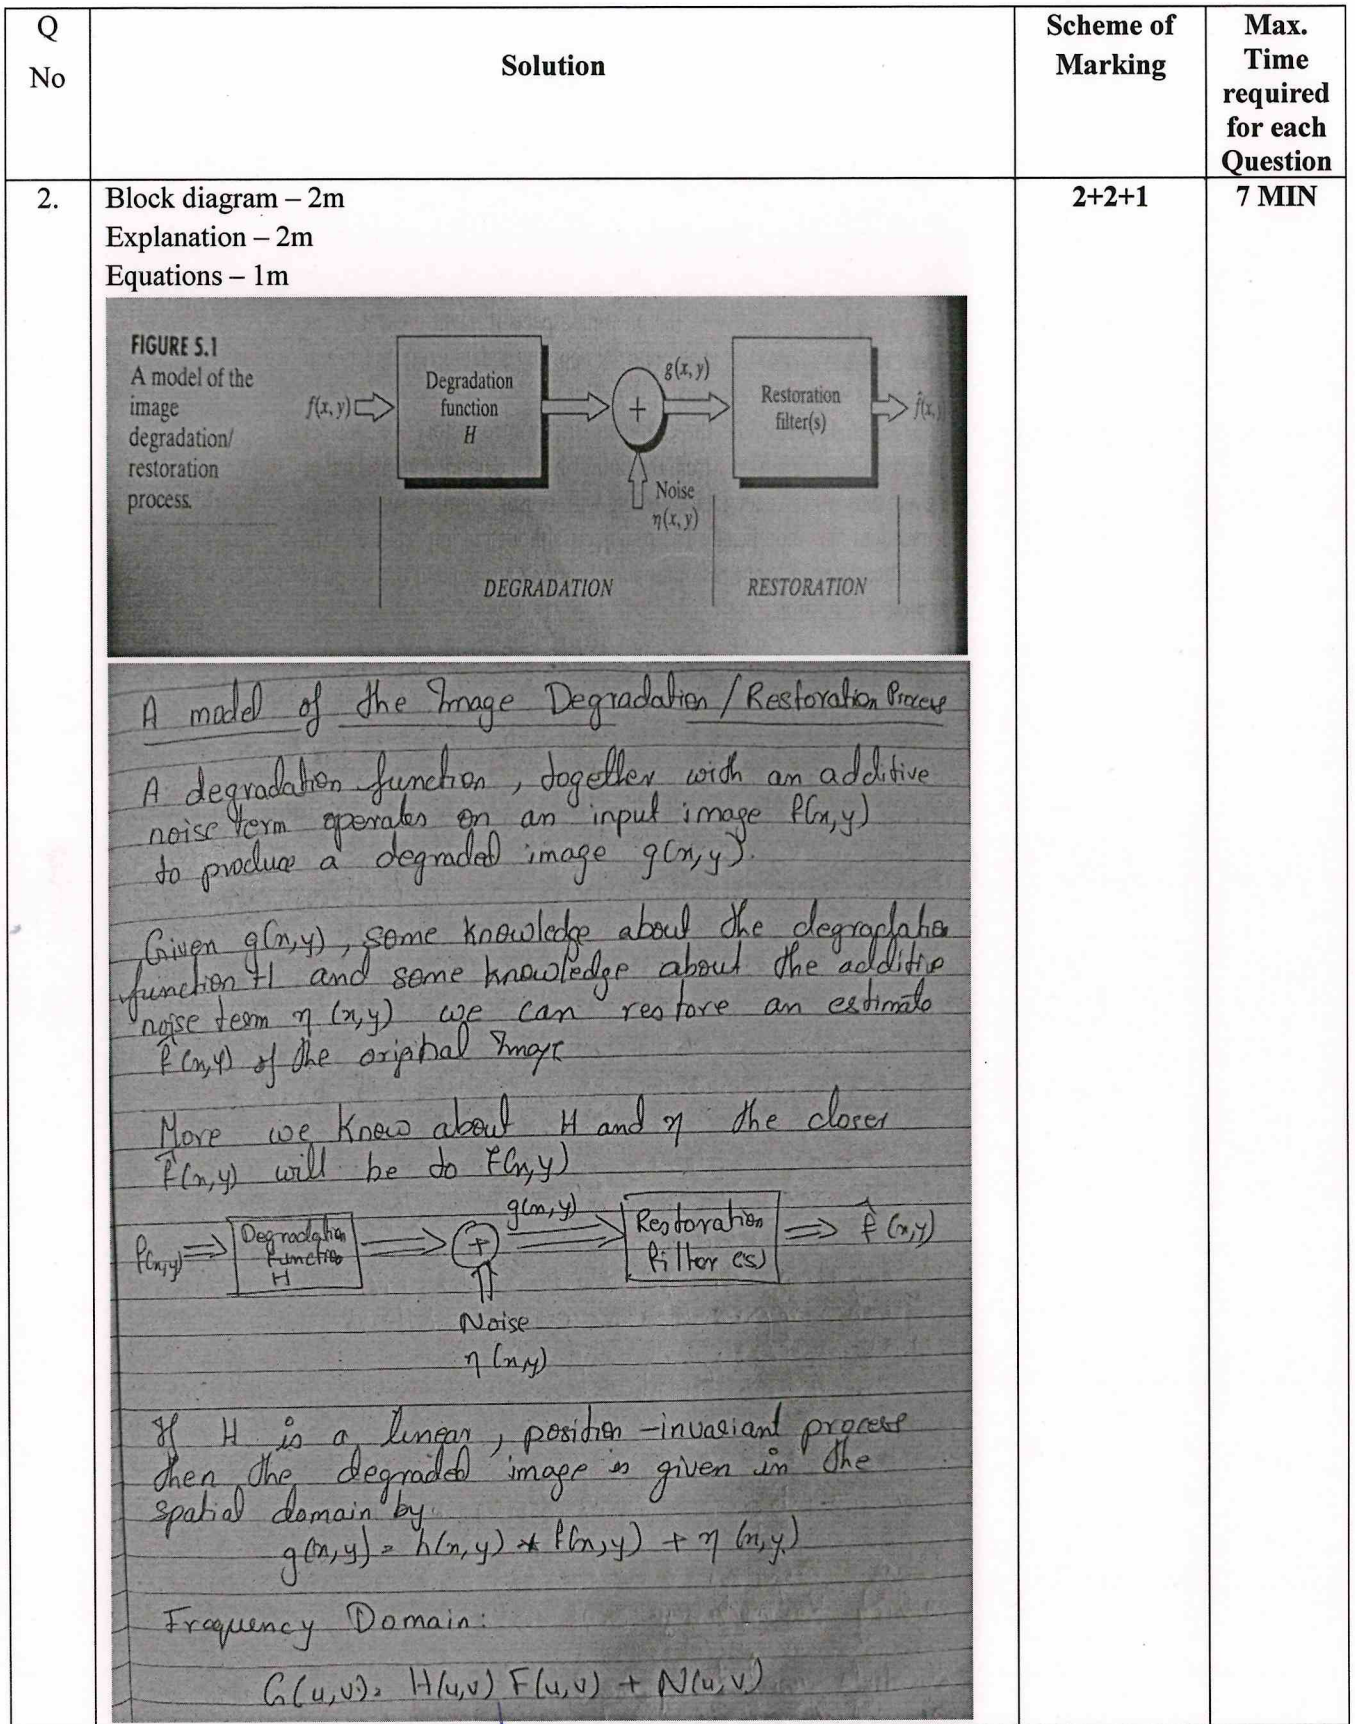 Q
No
Solution
Scheme of
Marking
Max.
Time
required
for each
Question
2.
Block diagram – 2m
Explanation – 2m
Equations – 1m
2+2+1
7 MIN
FIGURE 5.1
A model of the
image
degradation/
restoration
process.
f(x, y)
Degradation
function
H
+
g(x, y)
Noise
η(x, y)
Restoration
filter(s)
f̂(x,
DEGRADATION
RESTORATION
A model of the Image Degradation / Restoration Process
A degradation function, together with an additive
noise term operates on an input image f(x,y)
to produce a degraded image g(x,y).
Given g(x,y), some knowledge about the degradatio
function H and some knowledge about the additive
noise term η (x,y) we can restore an estimate
f̂(x,y) of the original Image
More we know about H and η the closer
f̂(x,y) will be to f(x,y)
f(x,y)
Degradation
function
H
+
g(x,y)
Restoration
filter (s)
f̂ (x,y)
Noise
η (x,y)
If H is a linear, position-invariant process
then the degraded image is given in the
spatial domain by
g(x,y) = h(x,y) * f(x,y) + η (x,y)
Frequency Domain:
G(u,v) = H(u,v) F(u,v) + N(u,v)